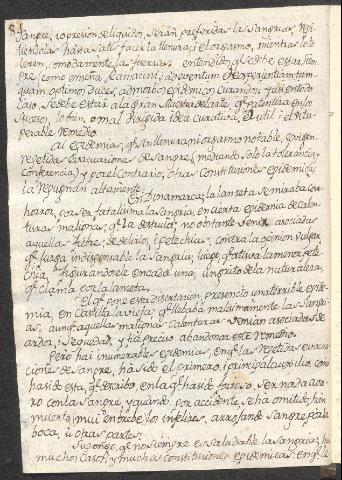 Sangre, ô opresion de liquidos, serán preferidas las sangrias, repi-
tiendolas hasta satisfacer la llenura, i el orgasmo, mientras lo to
leren comodamente las fuerzas: entendiendo qe. se debe estar siem
pre, como enseña Ramacini, ad eventum et experientiam tam-
quam optimos duces ad morbos epidemicos curandos, qe. en todo
caso se debe estar a la gran Maestra del Arte, qe. patentiza en los
sucesos, lo bien, ô mal dirigida idea curativa, el util, i el vitu
perable remedio.
Ai epidemias, qe. sin llenura, ni orgasmo notable, exigen
repetidas evacuaciones de sangre (mirando solo la tolerancia, i
conferencia) y por el contrario, otras constituciones epidemicas
la repugnan altamente.
En Dinamarca, la lanzeta se miraba con
horror, por ser fatalisima la sangria, en cierta epidemia de calen-
turas malignas, qe. la destruió; no obstante venir asociadas
aquellas fiebres de delirio, i petechias, contra la opinion vulgar,
qe. juzga indispensable la sangria, luego qe. se avista la menor pete
chia, figurandole en cada una, un grito de la naturaleza,
qe. clama por la lanzeta.
El qe. pone esta disertacion, presencio una terrible epide-
mia, en Castilla la Vieja, qe. llebaba malisimamente las sangri-
as, aunqe. aquellas malignas calenturas venian asociadas de
ardor, i sequedad, y fue preciso abandonar este remedio.
Pero hai inumerables epidemias, en qe. las repetidas evacua
ciones de sangre, há sido el primero, i principal auxilio, como
ha sido esta, qe. describo, en la qe. ha sido preciso, ser nada ava-
ro con la sangre, y quando por accidente se ha omitido, han
muerto (mui en brebe) los infelizes, arrojando sangre, por la
boca, ù otras partes.
Supongo, qe. no siempre es saludable la sangria; hai
muchos casos, y muchas constituciones epidemicas, en qe. le